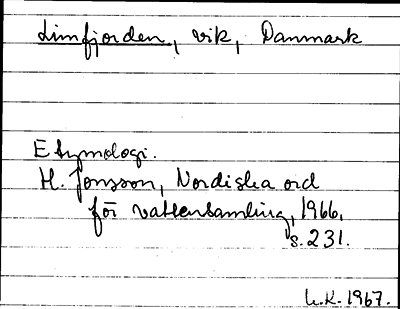 Limfjorden, vik, Danmark
Etymologi.
H. Jonsson, Nordiska ord
för vattensamling, 1966,
s. 231.
L.K. 1967.